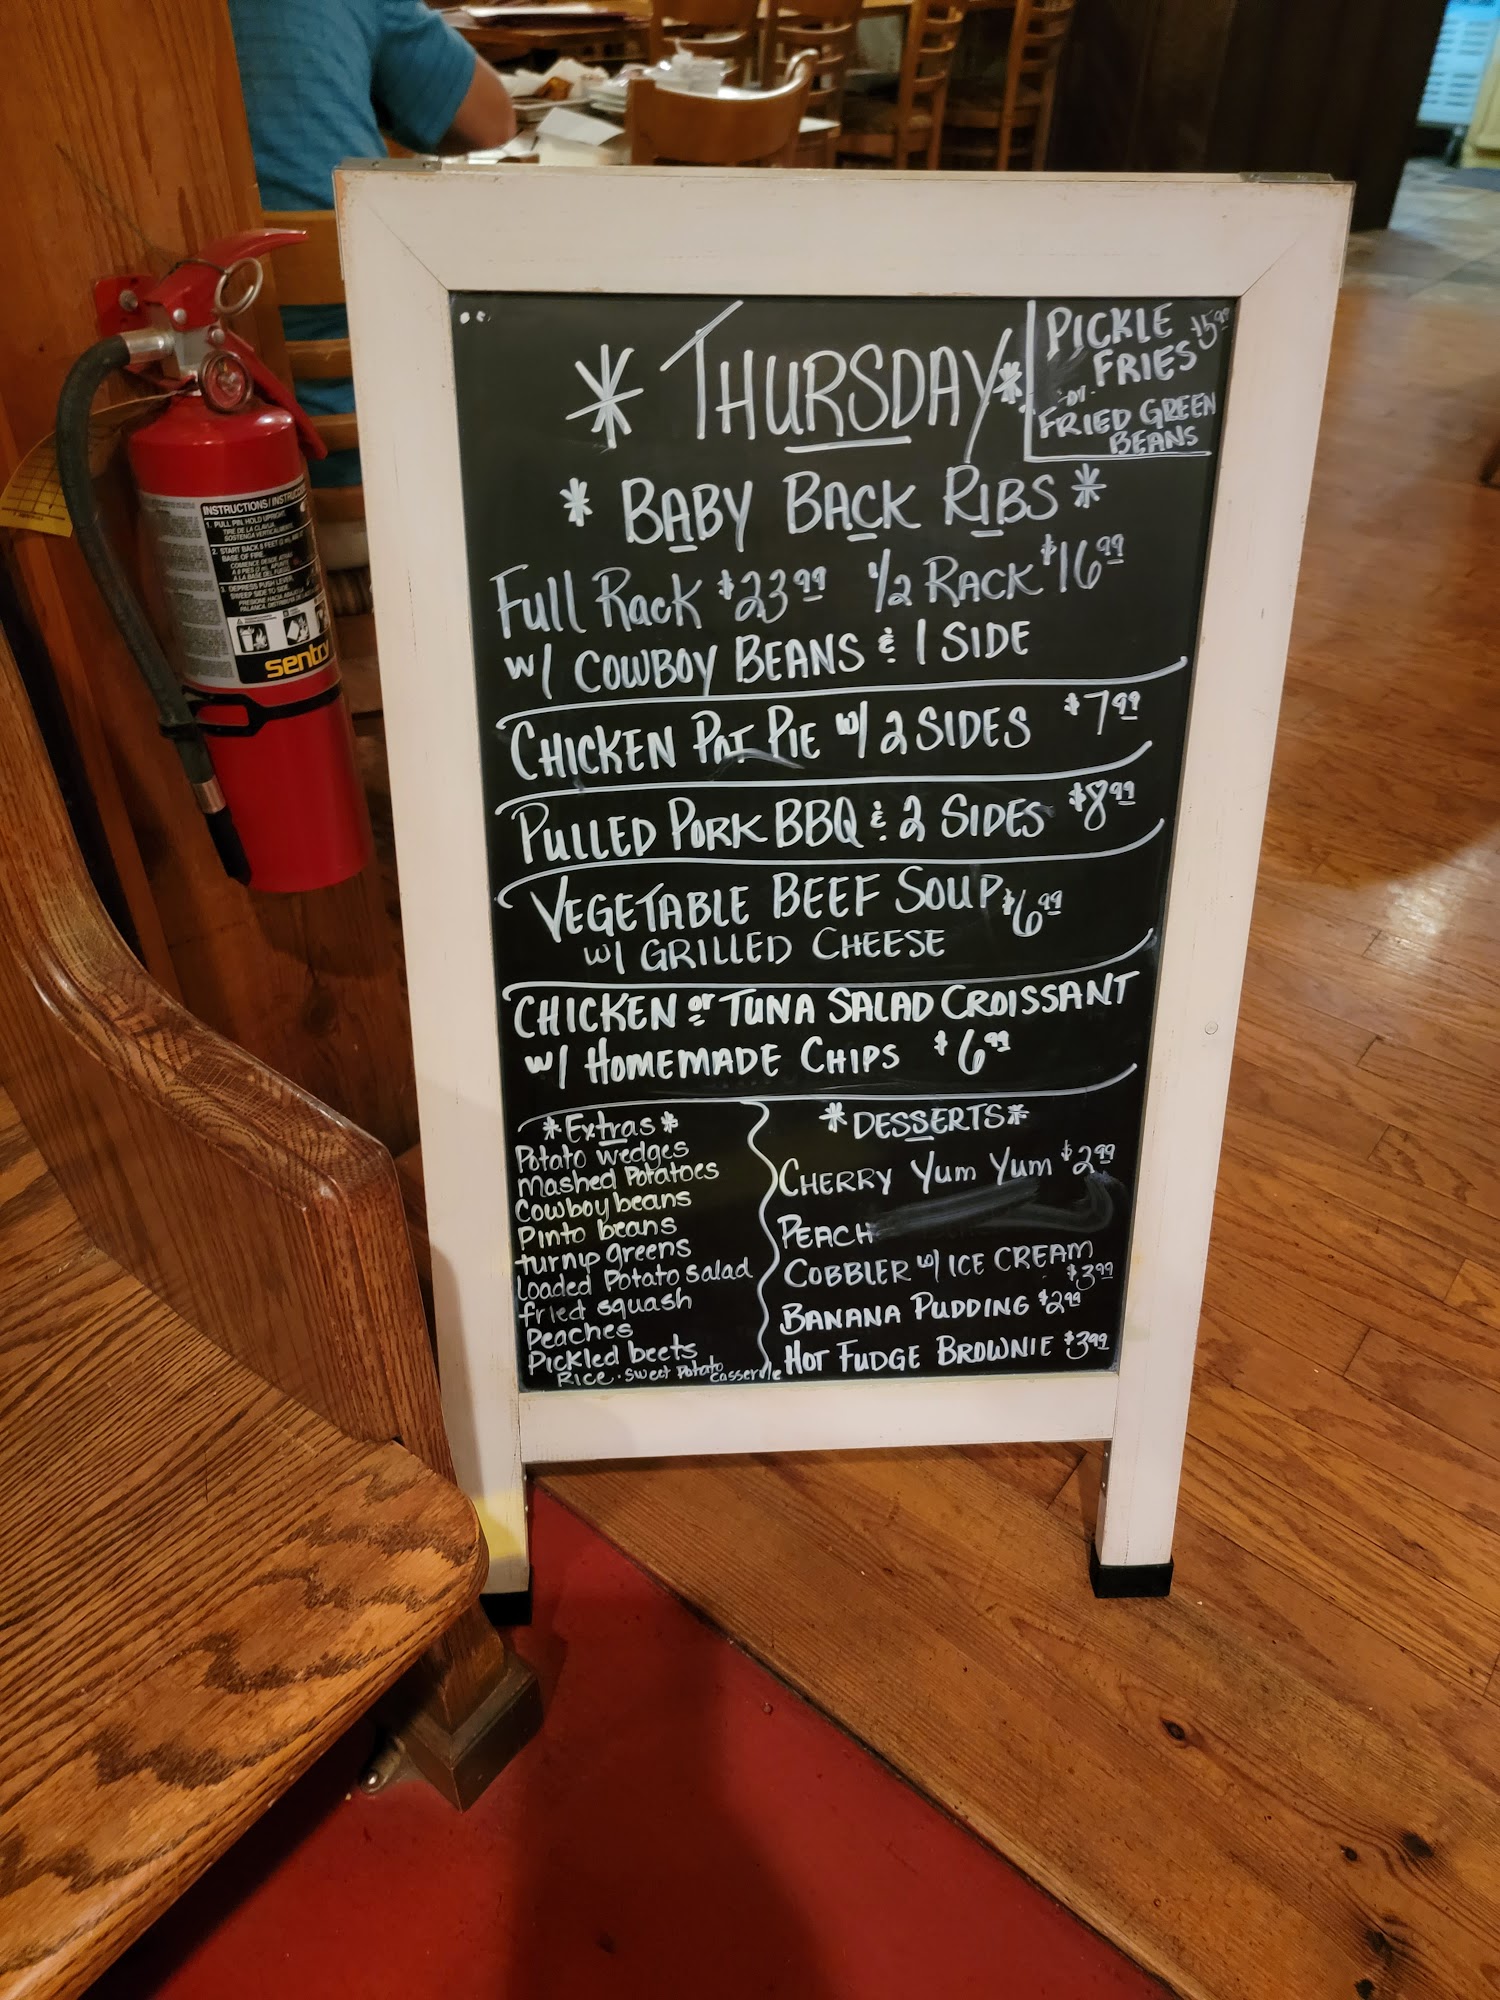 * THURSDAY *
PICKLE $5.99
FRIES
-or-
FRIED GREEN
BEANS
* BABY BACK RIBS *
Full Rack $23.99 1/2 RACK $16.99
w/ COWBOY BEANS & 1 SIDE
CHICKEN POT PIE w/ 2 SIDES $7.99
PULLED PORK BBQ & 2 SIDES $8.99
VEGETABLE BEEF SOUP $6.99
w/ GRILLED CHEESE
CHICKEN or TUNA SALAD CROISSANT
w/ HOMEMADE CHIPS $6.99
*Extras*
Potato wedges
Mashed Potatoes
Cowboy beans
Pinto beans
turnip greens
loaded Potato salad
fried squash
Peaches
Pickled beets
RICE · Sweet Potato Casserole
*DESSERTS*
CHERRY YUM YUM $2.99
PEACH
COBBLER w/ ICE CREAM
$3.99
BANANA PUDDING $2.99
HOT FUDGE BROWNIE $3.99
INSTRUCTIONS/INSTRUC
1. PULL PIN. HOLD UPRIGHT.
TIRE DE LA CLAVIJA.
SOSTENGA VERTICALMENTE.
2. START BACK 8 FEET
BASE OF FIRE.
COMIENCE DESDE
A LA BASE DEL
3. DEPRESS PUSH LEVER,
SWEEP SIDE TO SIDE.
PRESIONE HACIA ABAJO LA
sentry